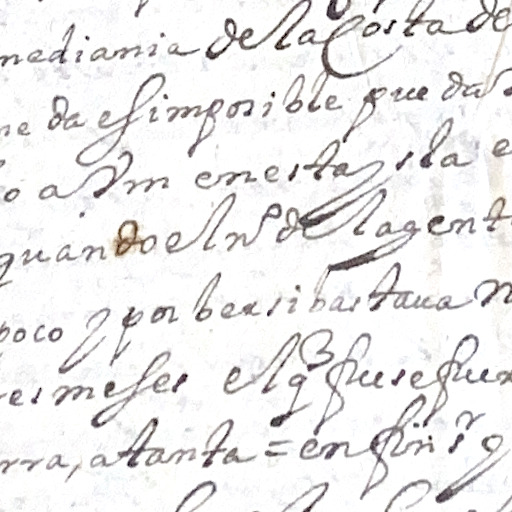 mediania de la Costa de
ne da es imposible pueda
o aVm en esta ysla e
quando el nº de la gent
poco y por ber si bastaua n
es meses el qº fuese fue
rra, a tanta = en fin sr q